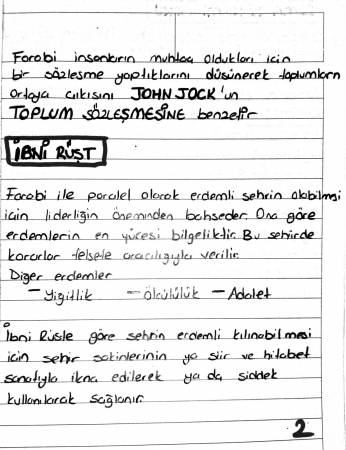 Farabi insanların muhtaç oldukları için
bir sözleşme yaptıklarını düşünerek toplumların
ortaya çıkışını JOHN JOCK'un
TOPLUM SÖZLEŞMESİNE benzetir
İBNİ RÜŞT
Farabi ile paralel olarak erdemli şehrin olabilmesi
için liderliğin öneminden bahseder. Ona göre
erdemlerin en yücesi bilgeliktir. Bu şehirde
kararlar felsefe aracılığıyla verilir.
Diğer erdemler
- Yiğitlik - Ölçülülük - Adalet
İbni Rüşle göre şehrin erdemli kılınabilmesi
için şehir sakinlerinin ya şiir ve hitabet
sanatıyla ikna edilerek ya da şiddet
kullanılarak sağlanır.
2